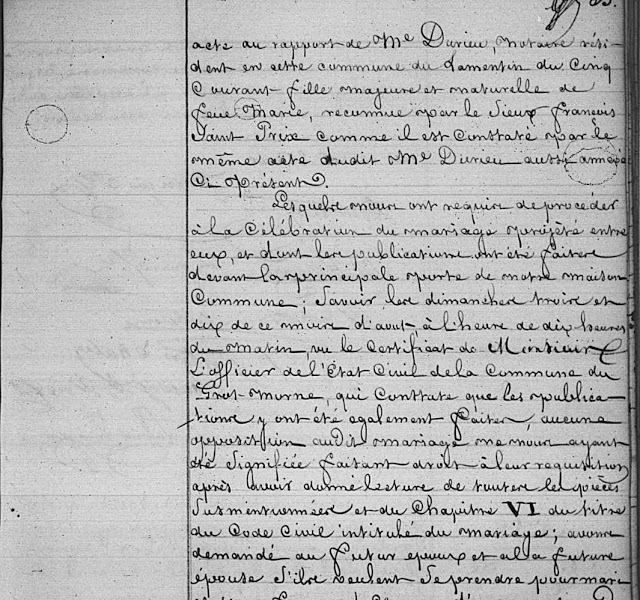 acte au rapport de Me Durieu, notaire rési-
dent en cette commune du Lamentin du Cinq
Courant fille majeure et naturelle de
feue Marie, reconnue par le Sieur François
Saint Prix comme il est constaté par le
même acte dudit Me Durieu aussi annexé
Ci présent.
Lesquels nous ont requis de procéder
à la Célébration du mariage projeté entre
eux, et dont les publications ont été faites
devant la principale porte de notre maison
Commune; Savoir les dimanches trois et
dix de ce mois d'août, à l'heure de dix heures
du Matin, vu le Certificat de Monsieur
L'officier de l'Etat Civil de la Commune du
Gros-Morne, qui Constate que les publica-
tions y ont été également faites, aucune
opposition audit mariage ne nous ayant
été Signifiée faisant droit à leur requisition
après avoir donné lecture de toutes les pièces
Susmentionnées et du Chapitre VI du titre
du Code Civil intitulé du mariage; avons
demandé au futur époux et à la future
épouse S'ils veulent Se prendre pour mari